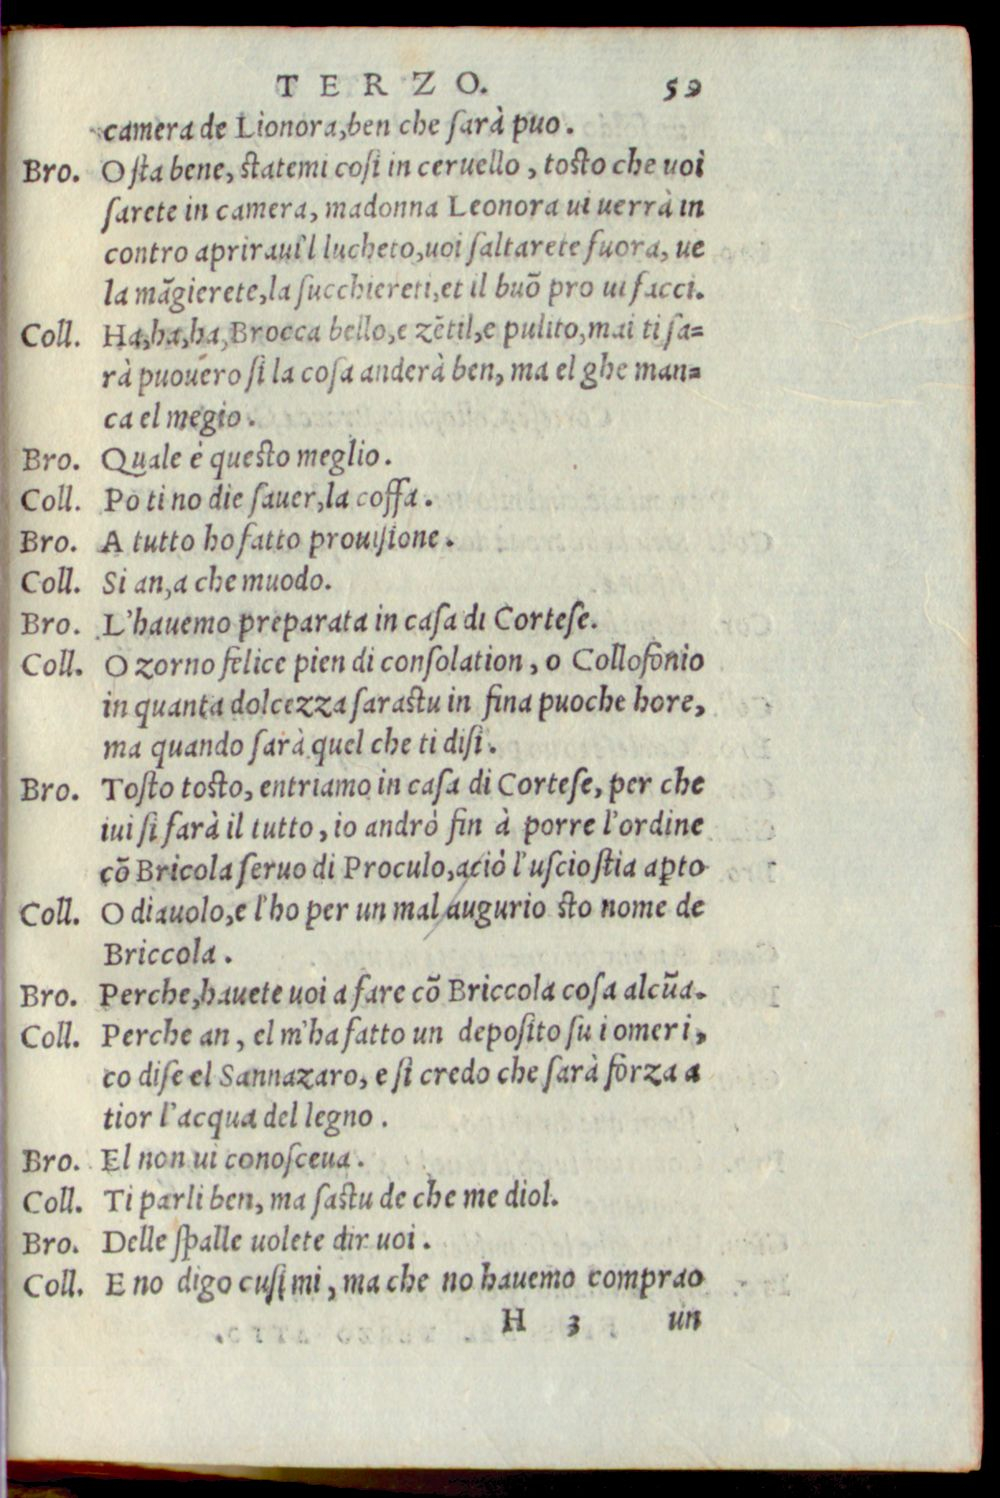 TERZO. 59
camera de Lionora, ben che sarà puo.
Bro. O sta bene, statemi cosi in ceruello, tosto che uoi
sarete in camera, madonna Leonora ui uerrà in
contro aprirauil lucheto, uoi saltarete fuora, ue
la mãgierete, la succhiereti, et il buõ pro ui facci.
Coll. Ha, ha, ha, Brocca bello, e zẽtil, e pulito, mai ti sa=
rà puouero si la cosa anderà ben, ma el ghe man=
ca el megio.
Bro. Quale è questo meglio.
Coll. Po ti no die sauer, la coffa.
Bro. A tutto ho fatto prouisione.
Coll. Si an, a che muodo.
Bro. L'hauemo preparata in casa di Cortese.
Coll. O zorno felice pien di consolation, o Collofonio
in quanta dolcezza sarastu in fina puoche hore,
ma quando sarà quel che ti disi.
Bro. Tosto tosto, entriamo in casa di Cortese, per che
iui si farà il tutto, io andrò fin à porre l'ordine
cõ Bricola seruo di Proculo, aciò l'uscio stia apto
Coll. O diauolo, e l'ho per un mal augurio sto nome de
Briccola.
Bro. Perche, hauete uoi a fare cõ Briccola cosa alcũa.
Coll. Perche an, el m'ha fatto un deposito su i omeri,
co dise el Sannazaro, e si credo che sarà forza a
tior l'acqua del legno.
Bro. El non ui conosceua.
Coll. Ti parli ben, ma sastu de che me diol.
Bro. Delle spalle uolete dir uoi.
Coll. E no digo cusi mi, ma che no hauemo comprao
H 3 un